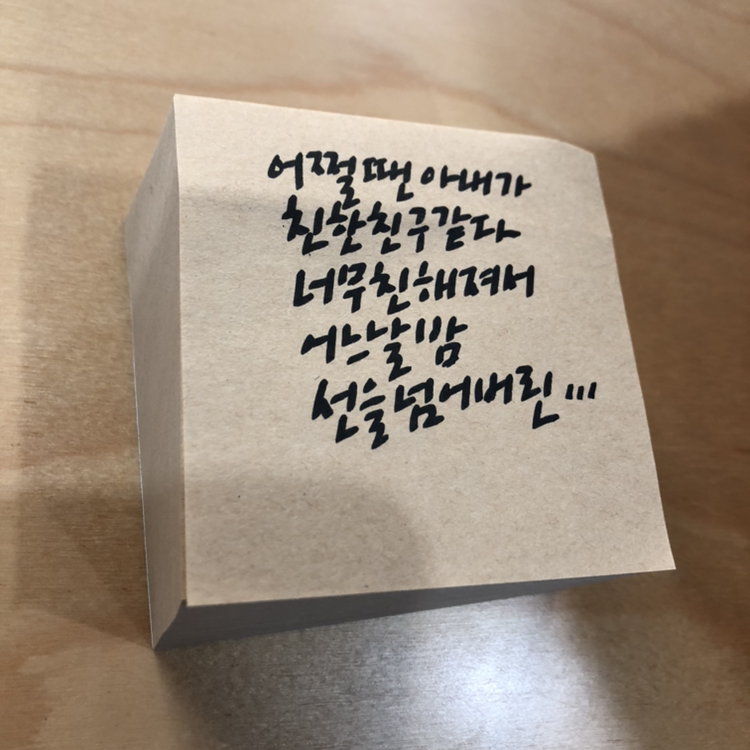 어쩔 땐 아내가
친한 친구 같다
너무 친해져서
어느 날 밤
선을 넘어버린...